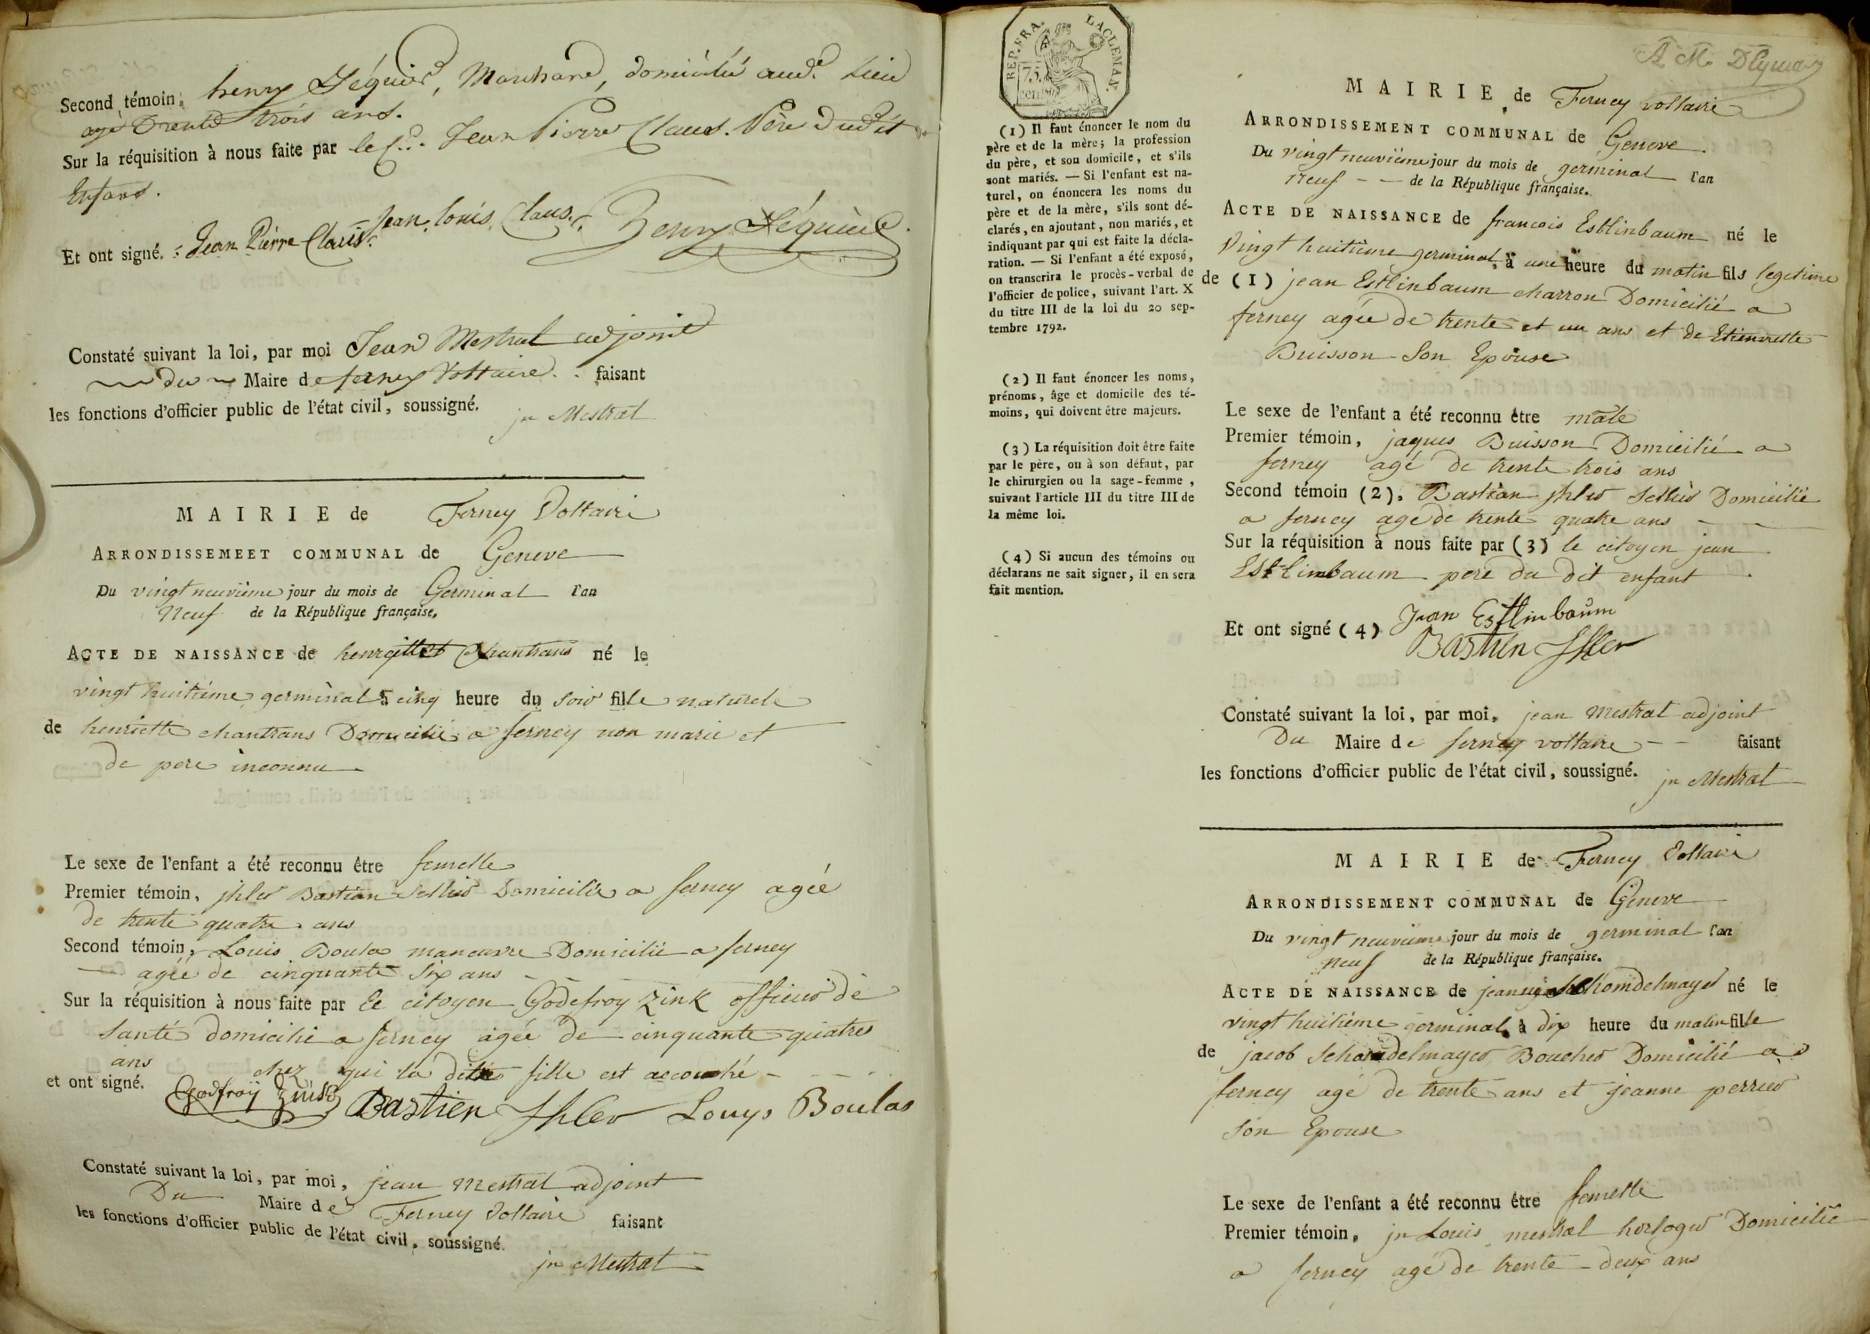 Second témoin, henry Séquier, Marchand, domicilié aud. Lieu
agé Trente trois ans.
Sur la réquisition à nous faite par le C. Jean Pierre Claus. Père dudit
Enfant.
Et ont signé. Jean Pierre Claus. Jean Louis Claus. Henry Séquier.
Constaté suivant la loi, par moi Jean Mestral adjoint
du Maire de ferney Voltaire faisant
les fonctions d'officier public de l'état civil, soussigné. jn Mestral
MAIRIE de Ferney Voltaire
ARRONDISSEMEET COMMUNAL de Geneve
Du vingt neuvieme jour du mois de Germinal l'an
Neuf de la République française.
ACTE DE NAISSANCE de henriette Chantrans né le
vingt huitieme germinal à cinq heure du soir fille naturele
de henriette chantrans Domicilié a ferney non marie et
de pere inconnu
Le sexe de l'enfant a été reconnu être femelle
Premier témoin, Bastian Sellier Domicilié a ferney agée
de trente quatre ans
Second témoin, Louis Boulas maneuvre Domicilié a ferney
agée de cinquante six ans
Sur la réquisition à nous faite par le citoyen Godefroy Zink officier de
santé domicilié a ferney agée de cinquante quatres
ans chez qui la ditte fille est accouché
et ont signé. Godfroy Bastien Ihler Louys Boulas
Constaté suivant la loi, par moi, jean mestral adjoint
Du Maire de Ferney Voltaire faisant
les fonctions d'officier public de l'état civil, soussigné.
jn Mestral
REP. FRA.
75.
cent.
(1) Il faut énoncer le nom du
père et de la mère; la profession
du père, et son domicile, et s'ils
sont mariés. — Si l'enfant est na-
turel, on énoncera les noms du
père et de la mère, s'ils sont dé-
clarés, en ajoutant, non mariés, et
indiquant par qui est faite la décla-
ration. — Si l'enfant a été exposé,
on transcrira le procès-verbal de
l'officier de police, suivant l'art. X
du titre III de la loi du 20 sep-
tembre 1792.
(2) Il faut énoncer les noms,
prénoms, âge et domicile des té-
moins, qui doivent être majeurs.
(3) La réquisition doit être faite
par le père, ou à son défaut, par
le chirurgien ou la sage-femme,
suivant l'article III du titre III de
la même loi.
(4) Si aucun des témoins ou
déclarans ne sait signer, il en sera
fait mention.
MAIRIE de Ferney voltaire
ARRONDISSEMENT COMMUNAL de Geneve
Du vingt neuvieme jour du mois de germinal l'an
neuf de la République française.
ACTE DE NAISSANCE de francois Estlinbaum né le
Vingt huitieme germinal à une heure du matin fils legitime
de (1) jean Estlinbaum charron Domicilié a
ferney agée de trente et un ans et de Etiennette
Buisson Son Epouse
Le sexe de l'enfant a été reconnu être male
Premier témoin, jaques Buisson Domicilié a
ferney agé de trente trois ans
Second témoin (2), Bastian Sellier Domicilié
a ferney age de trente quatre ans
Sur la réquisition à nous faite par (3) le citoyen jean
Estlinbaum pere du dit enfant
Et ont signé (4) Jean Estlinbaum
Bastien Ihler
Constaté suivant la loi, par moi, jean mestral adjoint
Du Maire de ferney voltaire faisant
les fonctions d'officier public de l'état civil, soussigné. jn Mestral
MAIRIE de Ferney Voltaire
ARRONDISSEMENT COMMUNAL de Geneve
Du vingt neuvieme jour du mois de germinal l'an
neuf de la République française.
ACTE DE NAISSANCE de né le
vingt huitieme germinal à dix heure du matin fille
de jacob Schondelmayer Boucher Domicilié a
ferney agé de trente ans et jeanne perrier
son Epouse
Le sexe de l'enfant a été reconnu être femelle
Premier témoin, jn Louis mestral horloger Domicilié
a ferney agé de trente deux ans